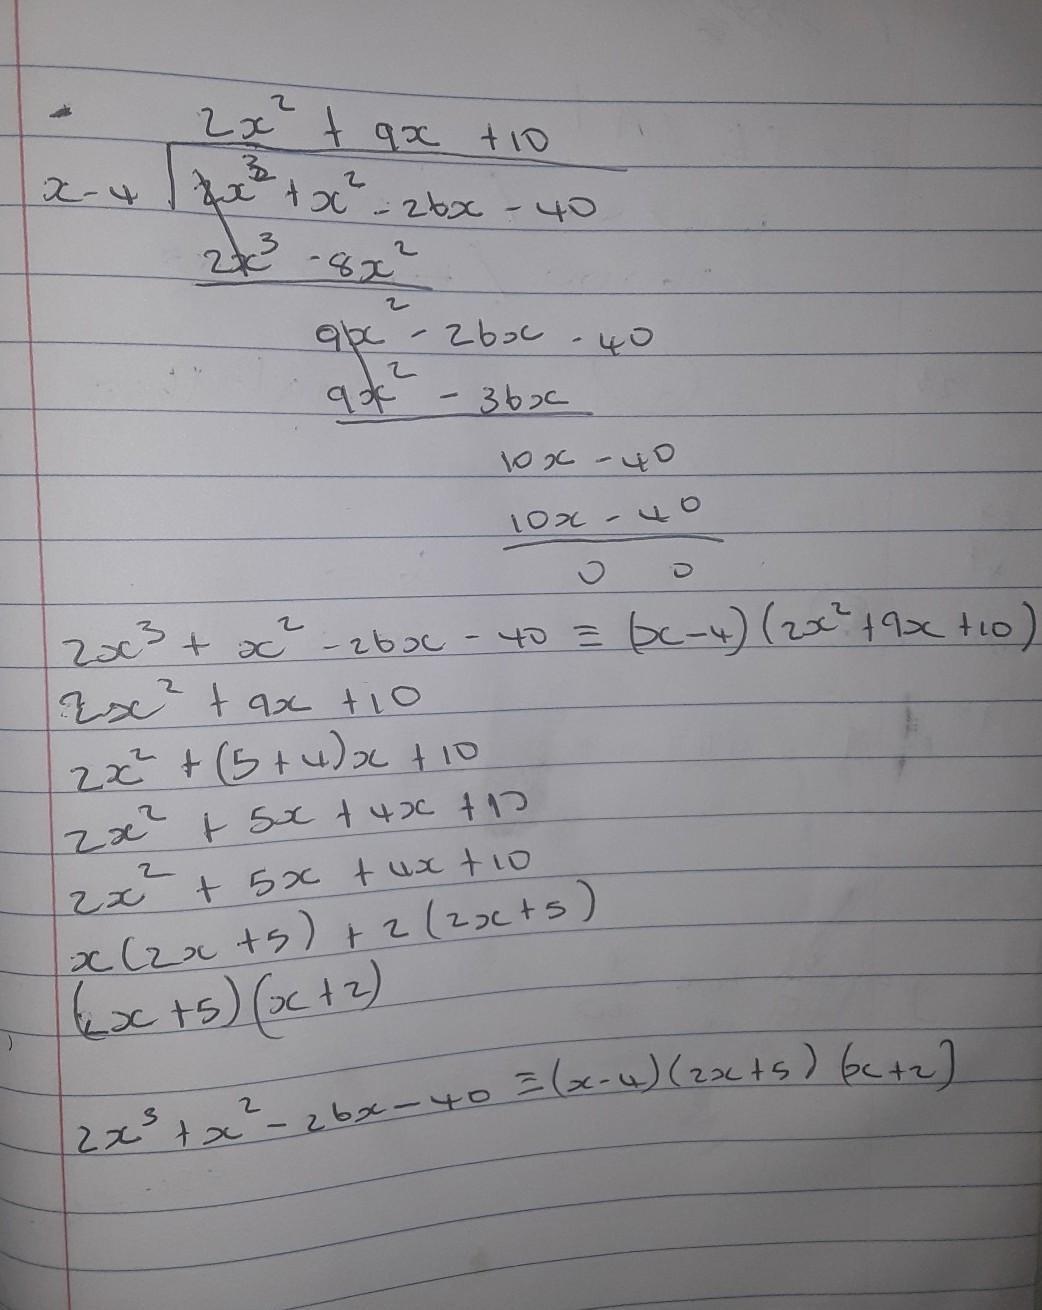 2x² + 9x + 10
x-4 2x³ + x² - 26x - 40
2x³ - 8x²
9x² - 26x - 40
9x² - 36x
10x - 40
10x - 40
0 0
2x³ + x² - 26x - 40 ≡ (x-4)(2x² + 9x + 10)
2x² + 9x + 10
2x² + (5+4)x + 10
2x² + 5x + 4x + 10
2x² + 5x + 4x + 10
x(2x + 5) + 2(2x + 5)
(2x + 5)(x + 2)
2x³ + x² - 26x - 40 ≡ (x-4)(2x+5)(x+2)